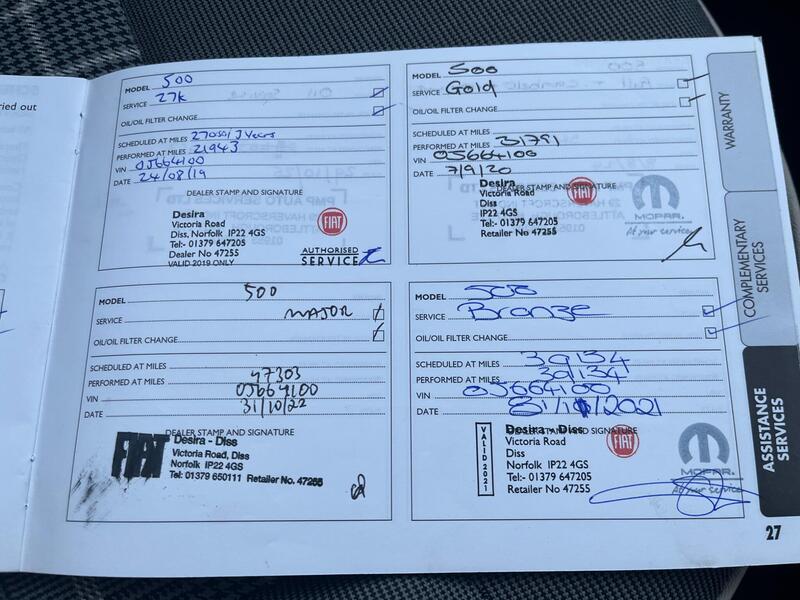 ried out
MODEL 500
SERVICE 27K
OIL/OIL FILTER CHANGE
SCHEDULED AT MILES
PERFORMED AT MILES 21943
VIN 0J664100
DATE 24/08/19
DEALER STAMP AND SIGNATURE
Desira
Victoria Road
Diss, Norfolk IP22 4GS
Tel:- 01379 647205
Dealer No 47255
VALID 2019 ONLY
FIAT
AUTHORISED
SERVICE
MODEL 500
SERVICE Gold
OIL/OIL FILTER CHANGE
SCHEDULED AT MILES
PERFORMED AT MILES 31791
VIN 0J664100
DATE 7/9/20
DEALER STAMP AND SIGNATURE
Desira
Victoria Road
Diss
IP22 4GS
Tel:- 01379 647205
Retailer No 47255
FIAT
MOPAR.
At your service
MODEL 500
SERVICE MAJOR
OIL/OIL FILTER CHANGE
SCHEDULED AT MILES
PERFORMED AT MILES 47303
VIN 0J664100
DATE 31/10/22
DEALER STAMP AND SIGNATURE
FIAT
Desira - Diss
Victoria Road, Diss
Norfolk IP22 4GS
Tel: 01379 650111 Retailer No. 47255
MODEL 500
SERVICE Bronze
OIL/OIL FILTER CHANGE
SCHEDULED AT MILES 39134
PERFORMED AT MILES 39134
VIN 0J664100
DATE
DEALER STAMP AND SIGNATURE
VALID 2021
Desira - Diss
Victoria Road
Diss
Norfolk IP22 4GS
Tel:- 01379 647205
Retailer No 47255
FIAT
MOPAR.
At your service
WARRANTY
COMPLEMENTARY
SERVICES
ASSISTANCE
SERVICES
27